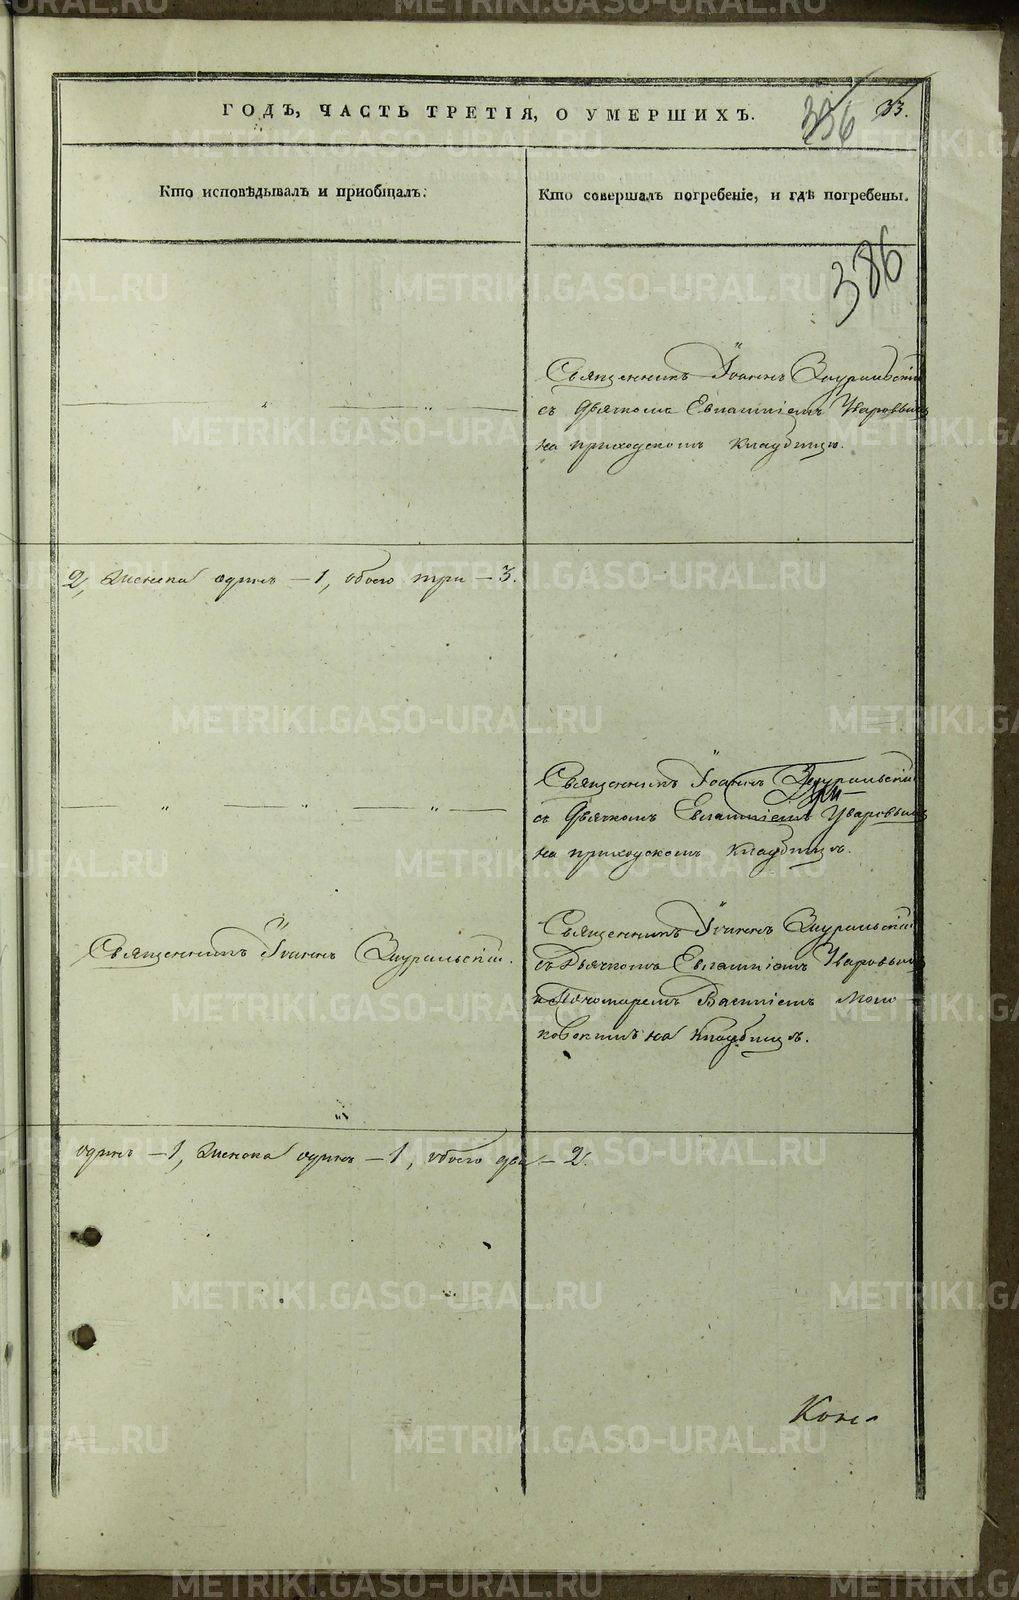 ГОДЪ, ЧАСТЬ ТРЕТІЯ, О УМЕРШИХЪ.
33.
386
Кто исповѣдывалъ и пріобщалъ.
Кто совершалъ погребеніе, и гдѣ погребены.
Священникъ Іоаннъ Зауральскій
съ Дьячкомъ Евлампіемъ Уваровымъ
на приходскомъ кладбищѣ.
2, женска одинъ — 1, обоего три — 3.
Священникъ Іоаннъ Зауральскій
съ Дьячкомъ Евлампіемъ Уваровымъ
на приходскомъ кладбищѣ.
Священникъ Іоаннъ Зауральскій.
Священникъ Іоаннъ Зауральскій
съ Дьячкомъ Евлампіемъ Уваровымъ
и Пономаремъ Василіемъ
на кладбищѣ.
одинъ — 1, женска одинъ — 1, обоего два — 2.
METRIKI.GASO-URAL.RU